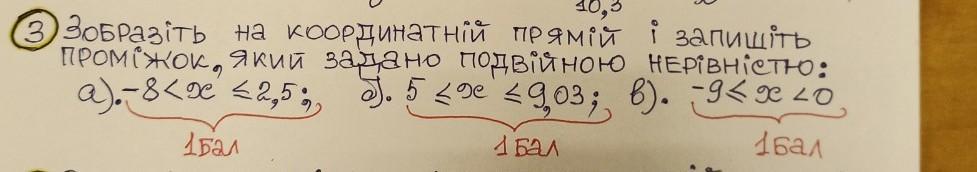 10,3
3 Зобразіть на координатній прямій і запишіть
проміжок, який задано подвійною нерівністю:
а). -8 < x ≤ 2,5; б). 5 ≤ x ≤ 9,03; в). -9 ≤ x < 0
1 бал 1 бал 1 бал